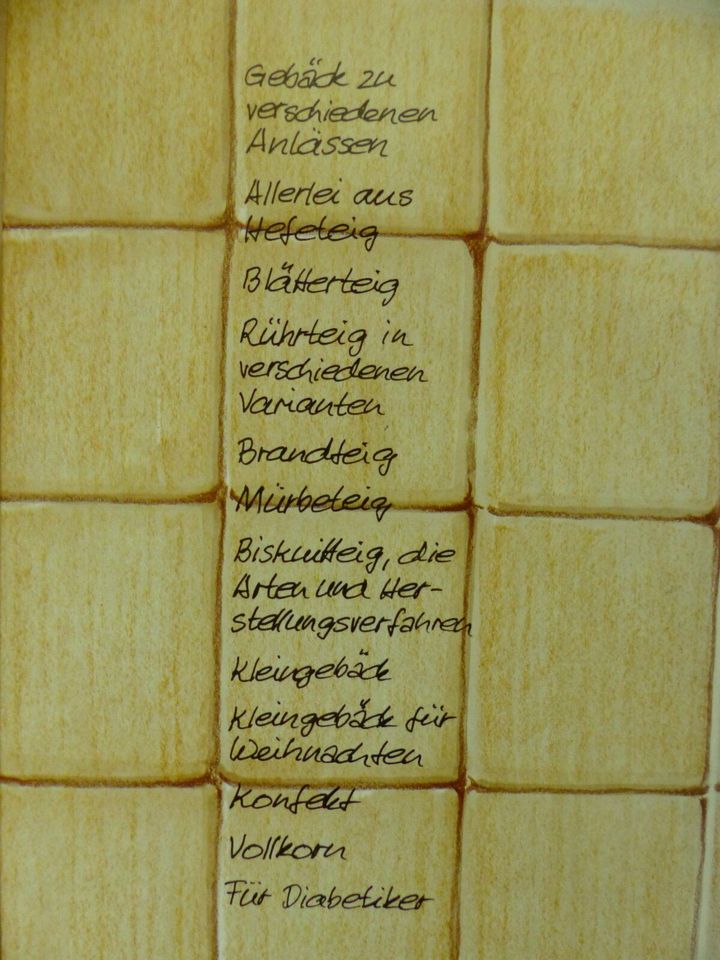 Gebäck zu
verschiedenen
Anlässen
Allerlei aus
Hefeteig
Blätterteig
Rührteig in
verschiedenen
Varianten
Brandteig
Mürbeteig
Biskuitteig, die
Arten und Her-
stellungsverfahren
Kleingebäck
Kleingebäck für
Weihnachten
Konfekt
Vollkorn
Für Diabetiker